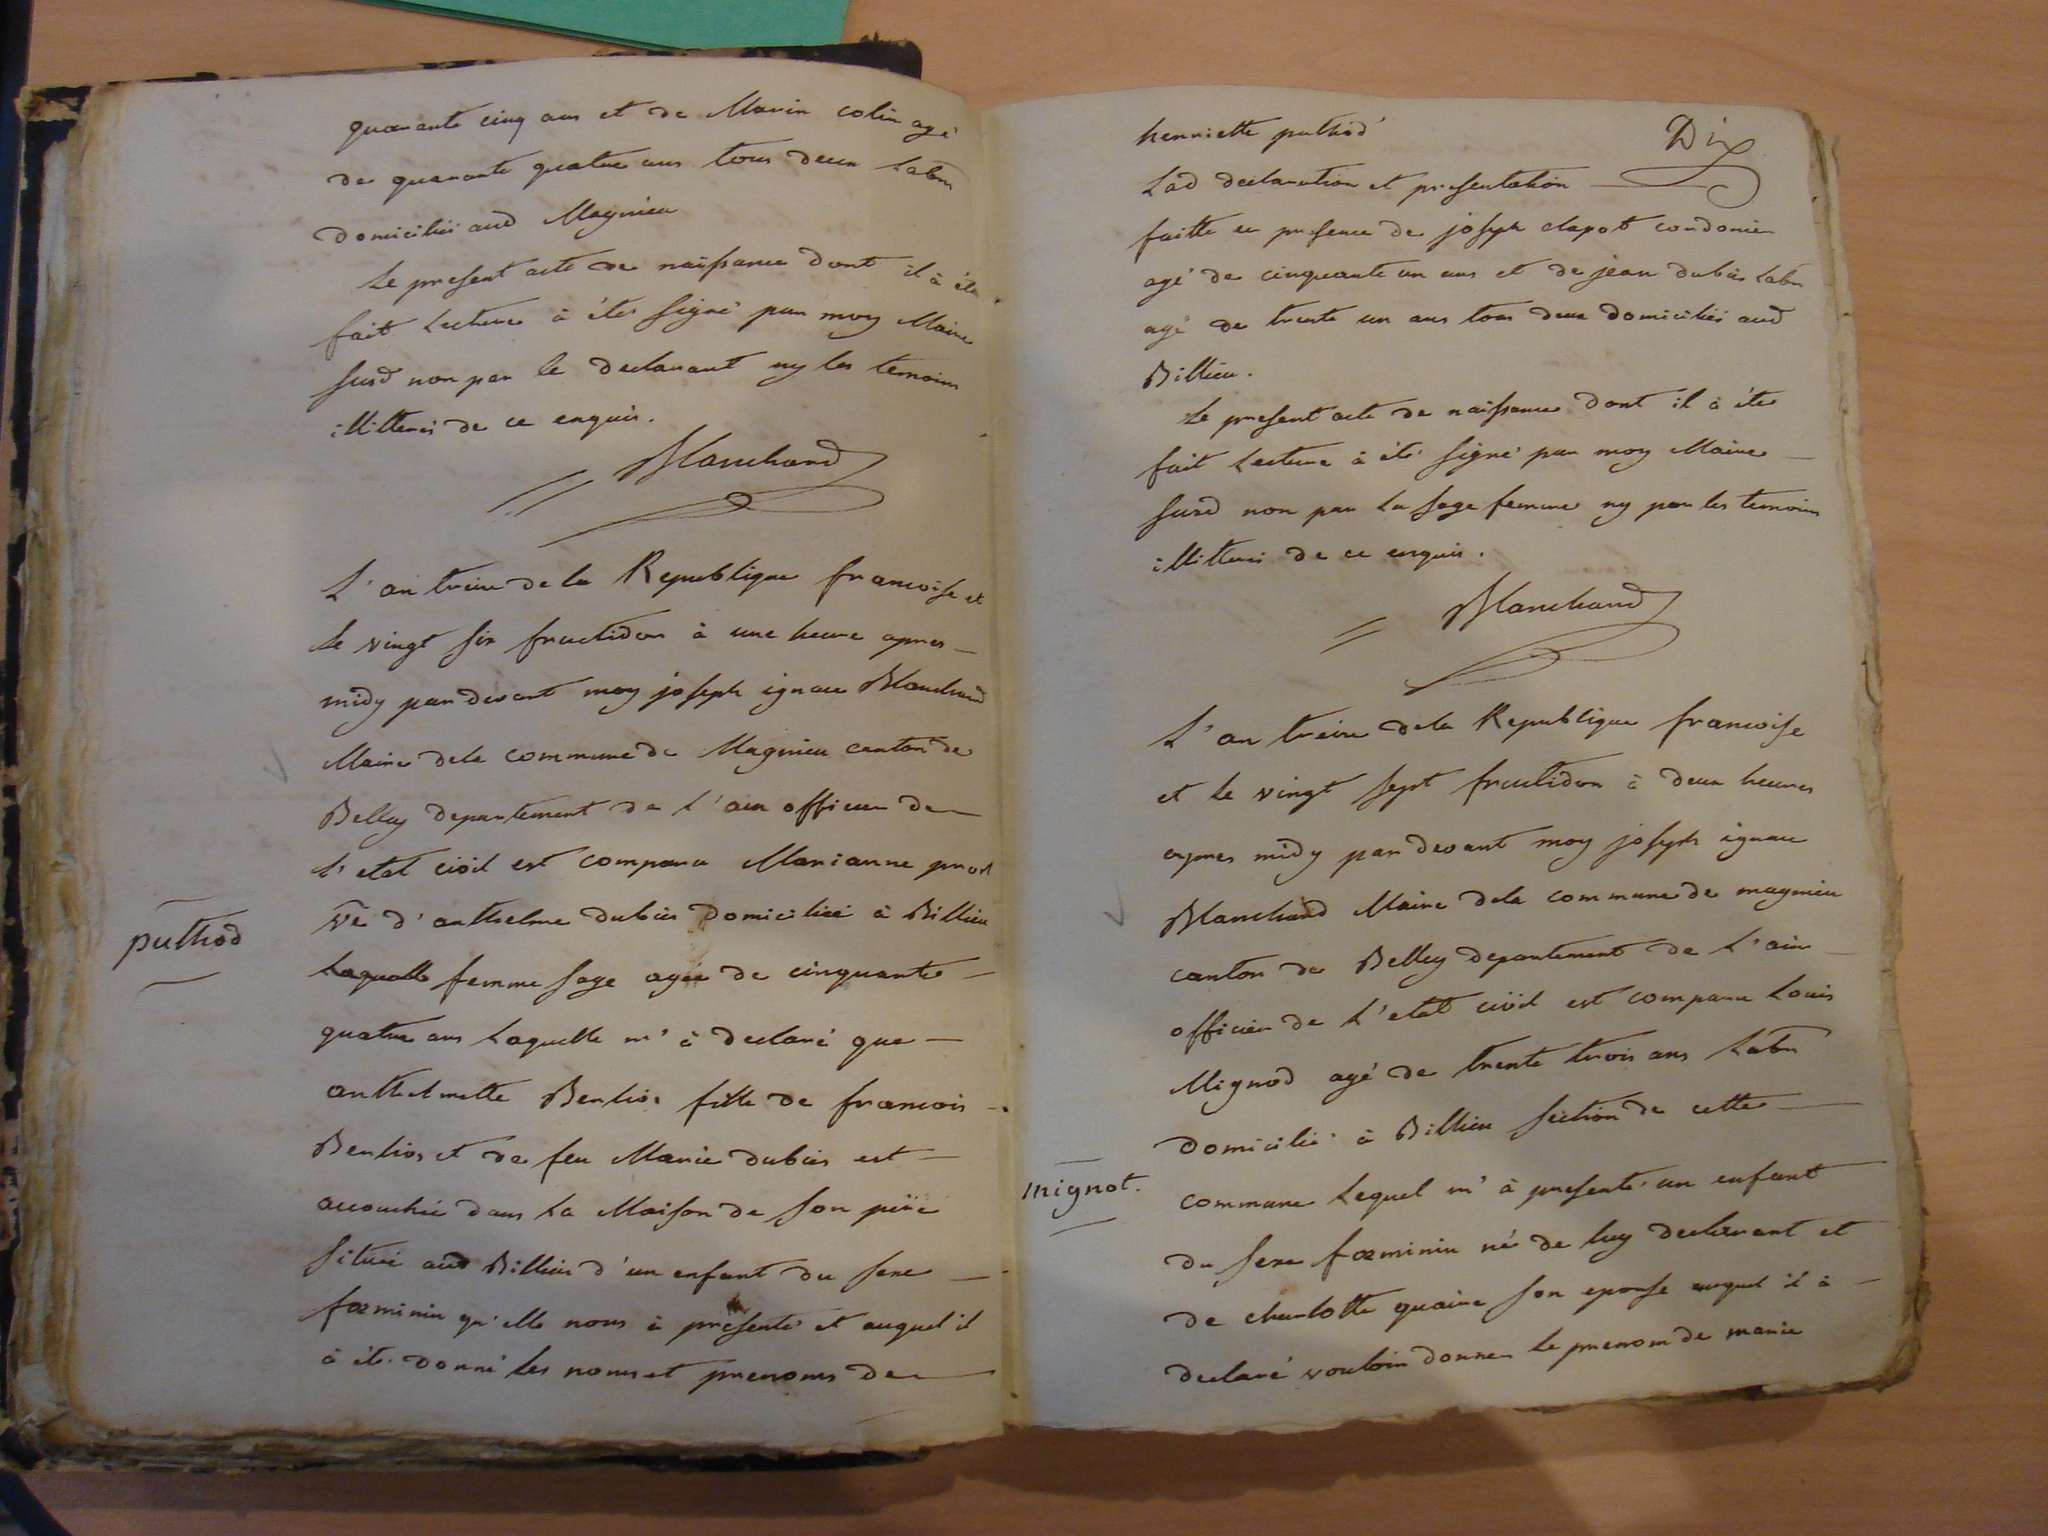 quarante cinq ans et de Marin colin agé
de quarante quatre ans tous deux Labr
domiciliés aud Magnieu
Le present acte de naissance dont il à été
fait Lecture à étés signé par moy Maire
susd non par le declarant ny les temoins
illitterés de ce enquis.
Blanchard
L'an treize de la Republique francoise et
le vingt six fructidor à une heure apres
midy pardevant moy joseph ignace Blanchard
Maire de la commune de Magnieu canton de
Belley departement de L'ain officier de
L'etat civil est comparu Marianne
puthod
Ve d'anthelme dubiès domiciliée à Billieu
Laquelle femme sage agée de cinquante
quatre ans Laquelle m'à declaré que
anthelmette Berlioz fille de francois
Berlioz et de feu Marie dubiès est
accouchée dans La Maison de son père
située aud Billieu d'un enfant du sexe
fœminin qu'elle nous à présenté et auquel il
à été donné les noms et prenoms de
Dix
henriette puthod
Lad declaration et presentation
faitte en presence de joseph clapot cordonier
agé de cinquante un ans et de jean dubiès Labr
agé de trente un ans tous deux domiciliés aud
Billieu.
Le present acte de naissance dont il à étés
fait Lecture à été signé par moy Maire
susd non par La sage femme ny par les temoins
illitterés de ce enquis.
Blanchard
L'an treize de la Republique francoise
et le vingt sept fructidor à deux heures
apres midy pardevant moy joseph ignace
Blanchard Maire de la commune de magnieu
canton de Belley departement de L'ain
officier de L'etat civil est comparu Louis
Mignod agé de trente trois ans Labr
domicilié à Billieu section de cette
mignot.
commune Lequel m'à presenté un enfant
du sexe fœminin né de luy declarant et
de charlotte quaire son epouse auquel il à
declaré vouloir donner le prenom de marie